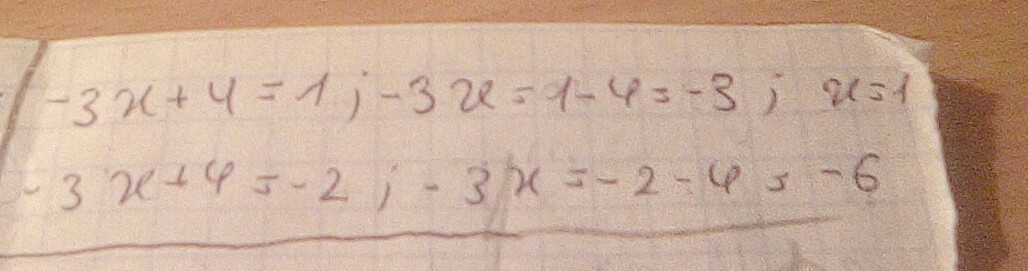 -3x+4=1; -3x=1-4=-3; x=1
-3x+4=-2; -3x=-2-4=-6